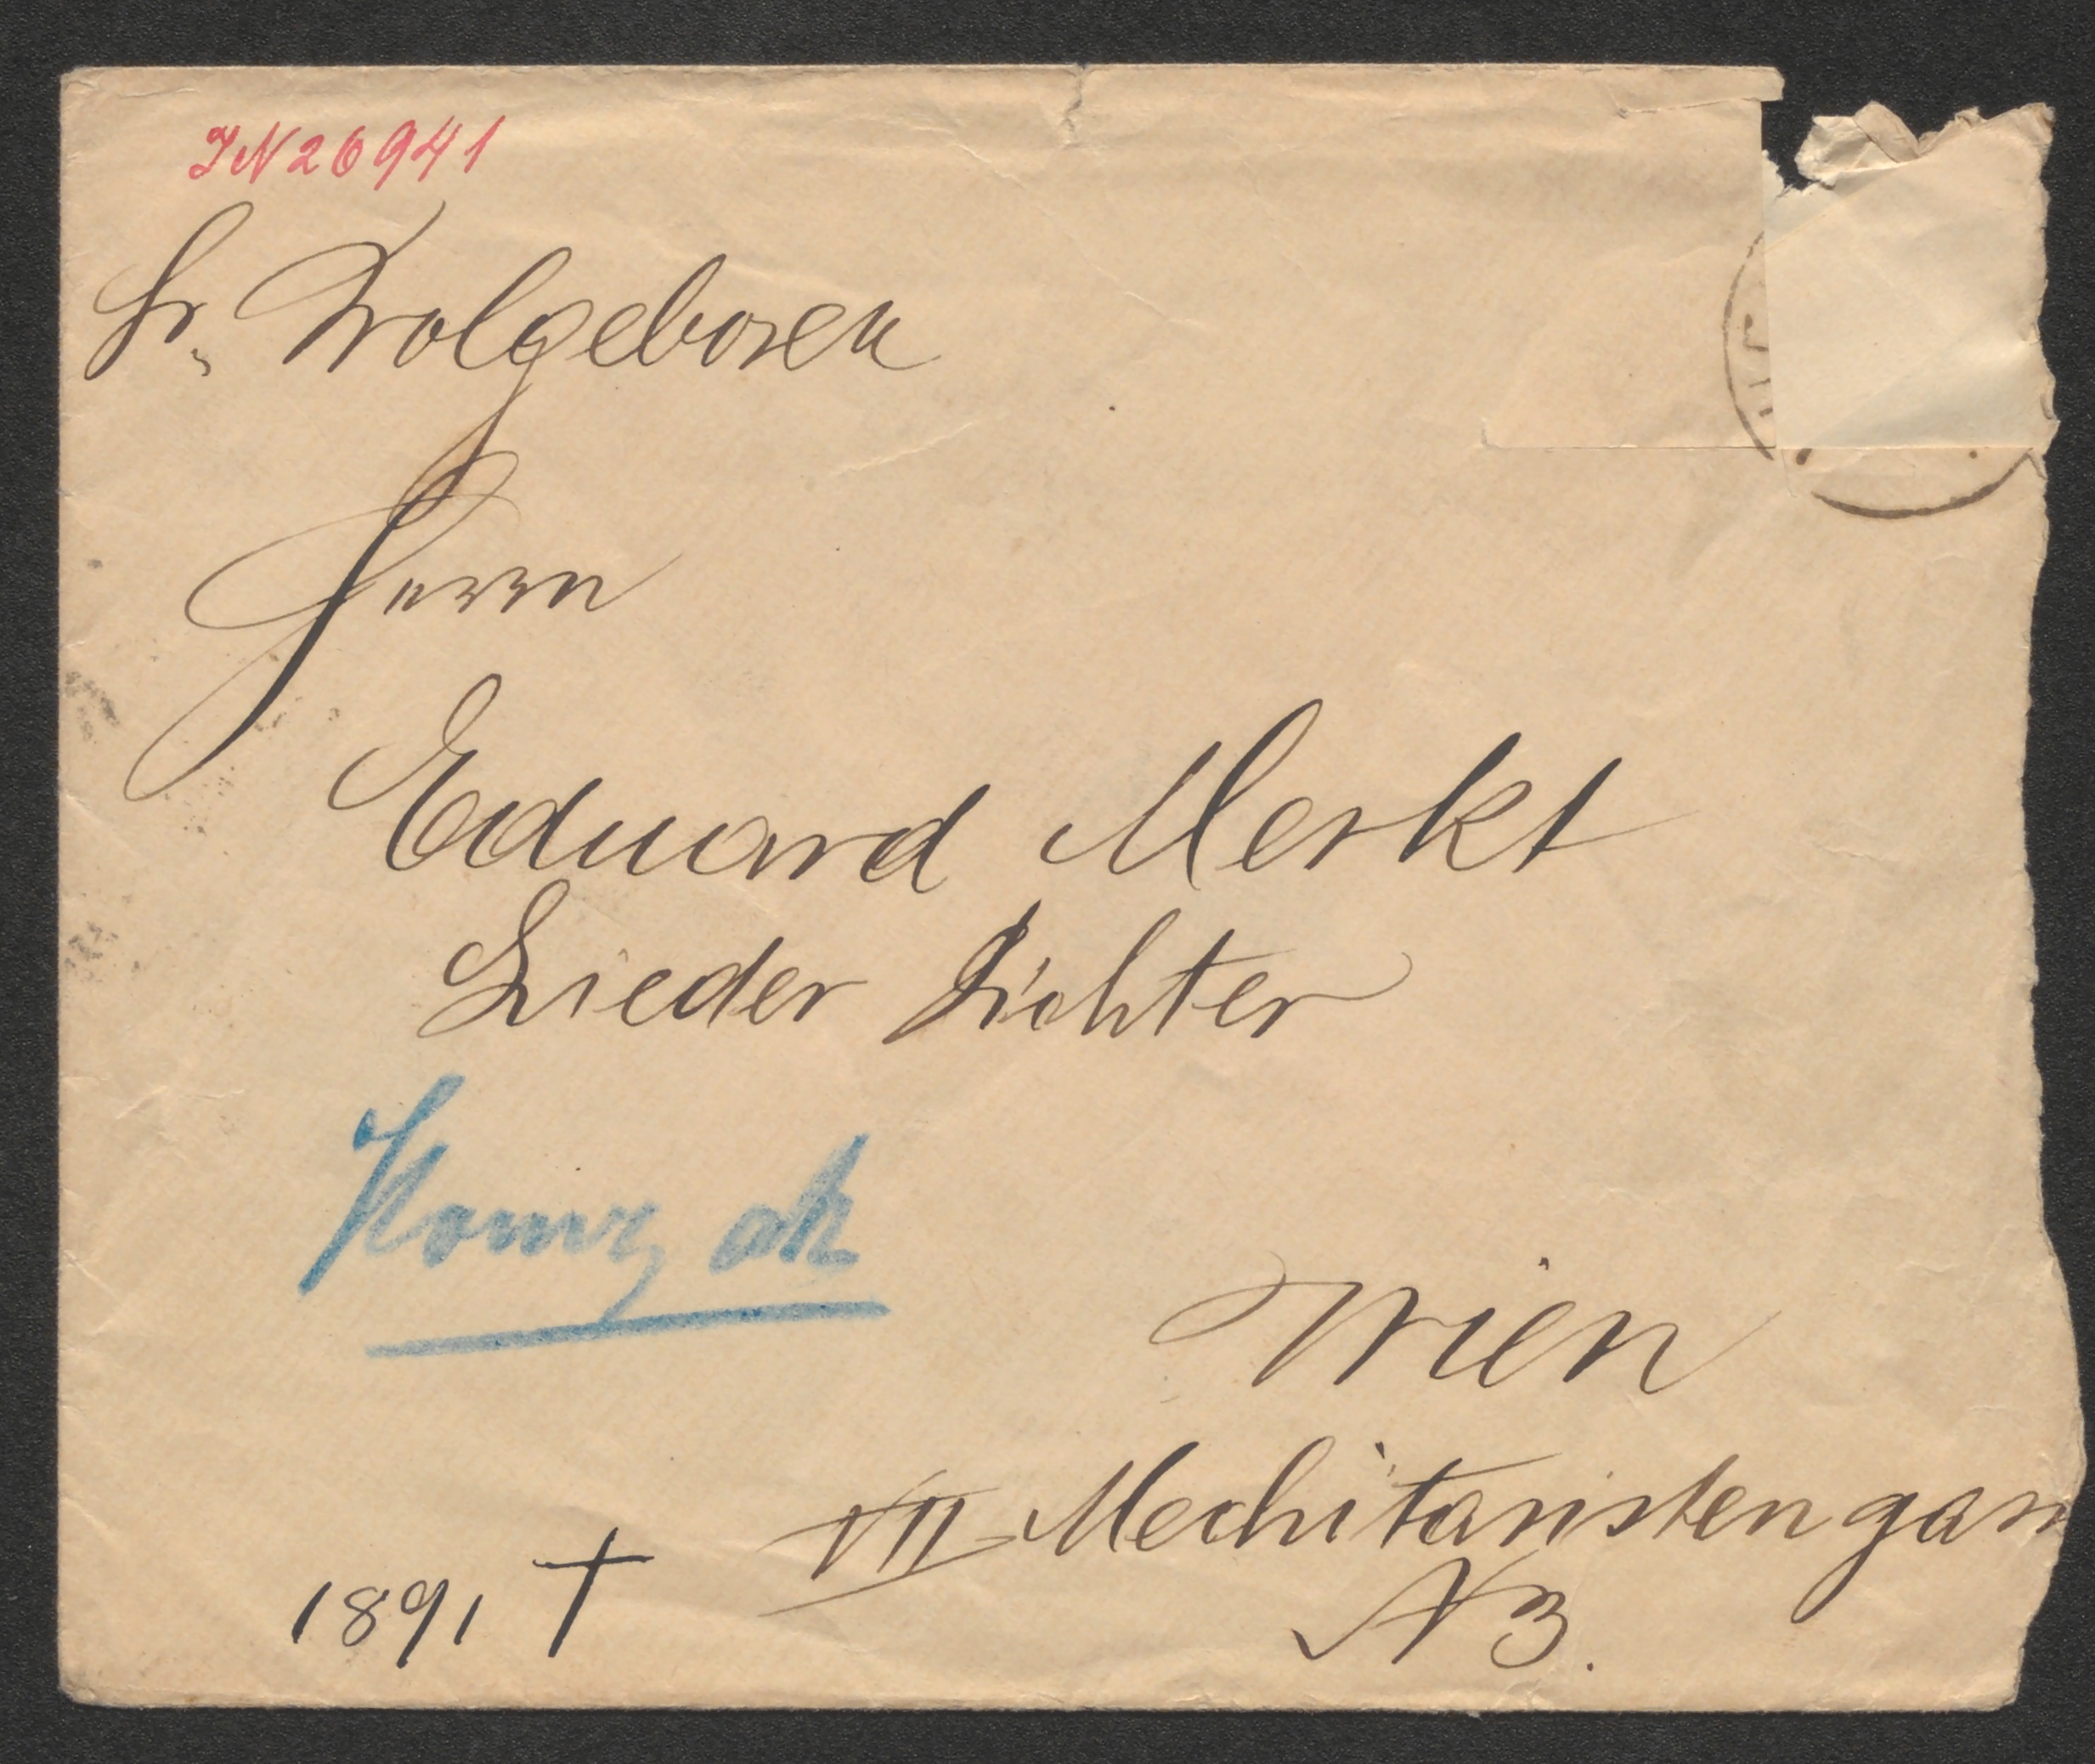 IN 26941
Sr. Wolgeboren
Herrn
Eduard Merkt
Lieder Dichter
Komzak
Wien
VII Mechitaristengass
N 3.
1891 †